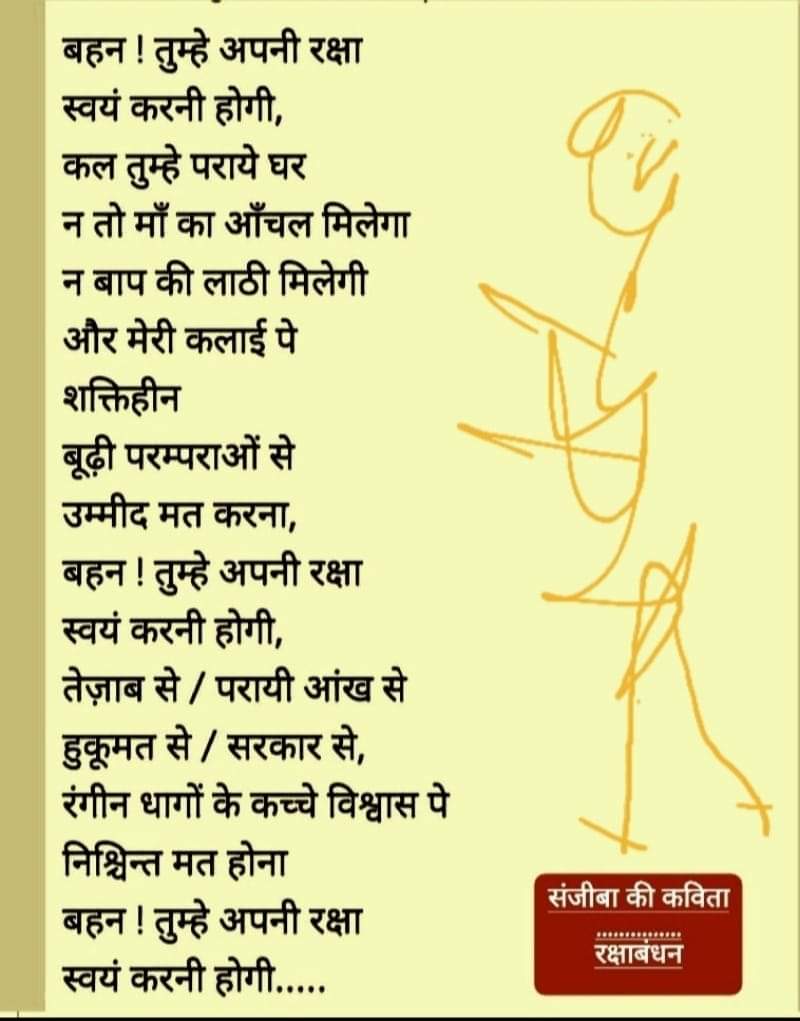 बहन ! तुम्हे अपनी रक्षा
स्वयं करनी होगी,
कल तुम्हे पराये घर
न तो माँ का आँचल मिलेगा
न बाप की लाठी मिलेगी
और मेरी कलाई पे
शक्तिहीन
बूढ़ी परम्पराओं से
उम्मीद मत करना,
बहन ! तुम्हे अपनी रक्षा
स्वयं करनी होगी,
तेज़ाब से / परायी आंख से
हुकूमत से / सरकार से,
रंगीन धागों के कच्चे विश्वास पे
निश्चिन्त मत होना
बहन ! तुम्हे अपनी रक्षा
स्वयं करनी होगी.....
संजीबा की कविता
...............
रक्षाबंधन